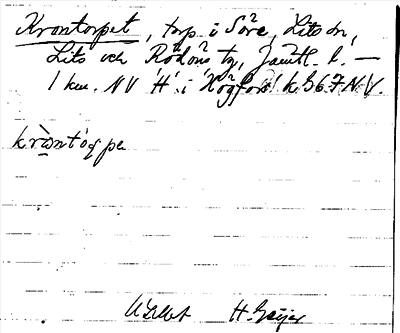 Krontorpet, torp i Söre, Lits sn,
Lits och Rödöns tg, Jämtl. l. —
1 km. NV 'H' i 'Högfors' k 367 N.V.
kròntórpe
ULMA H. Geijer